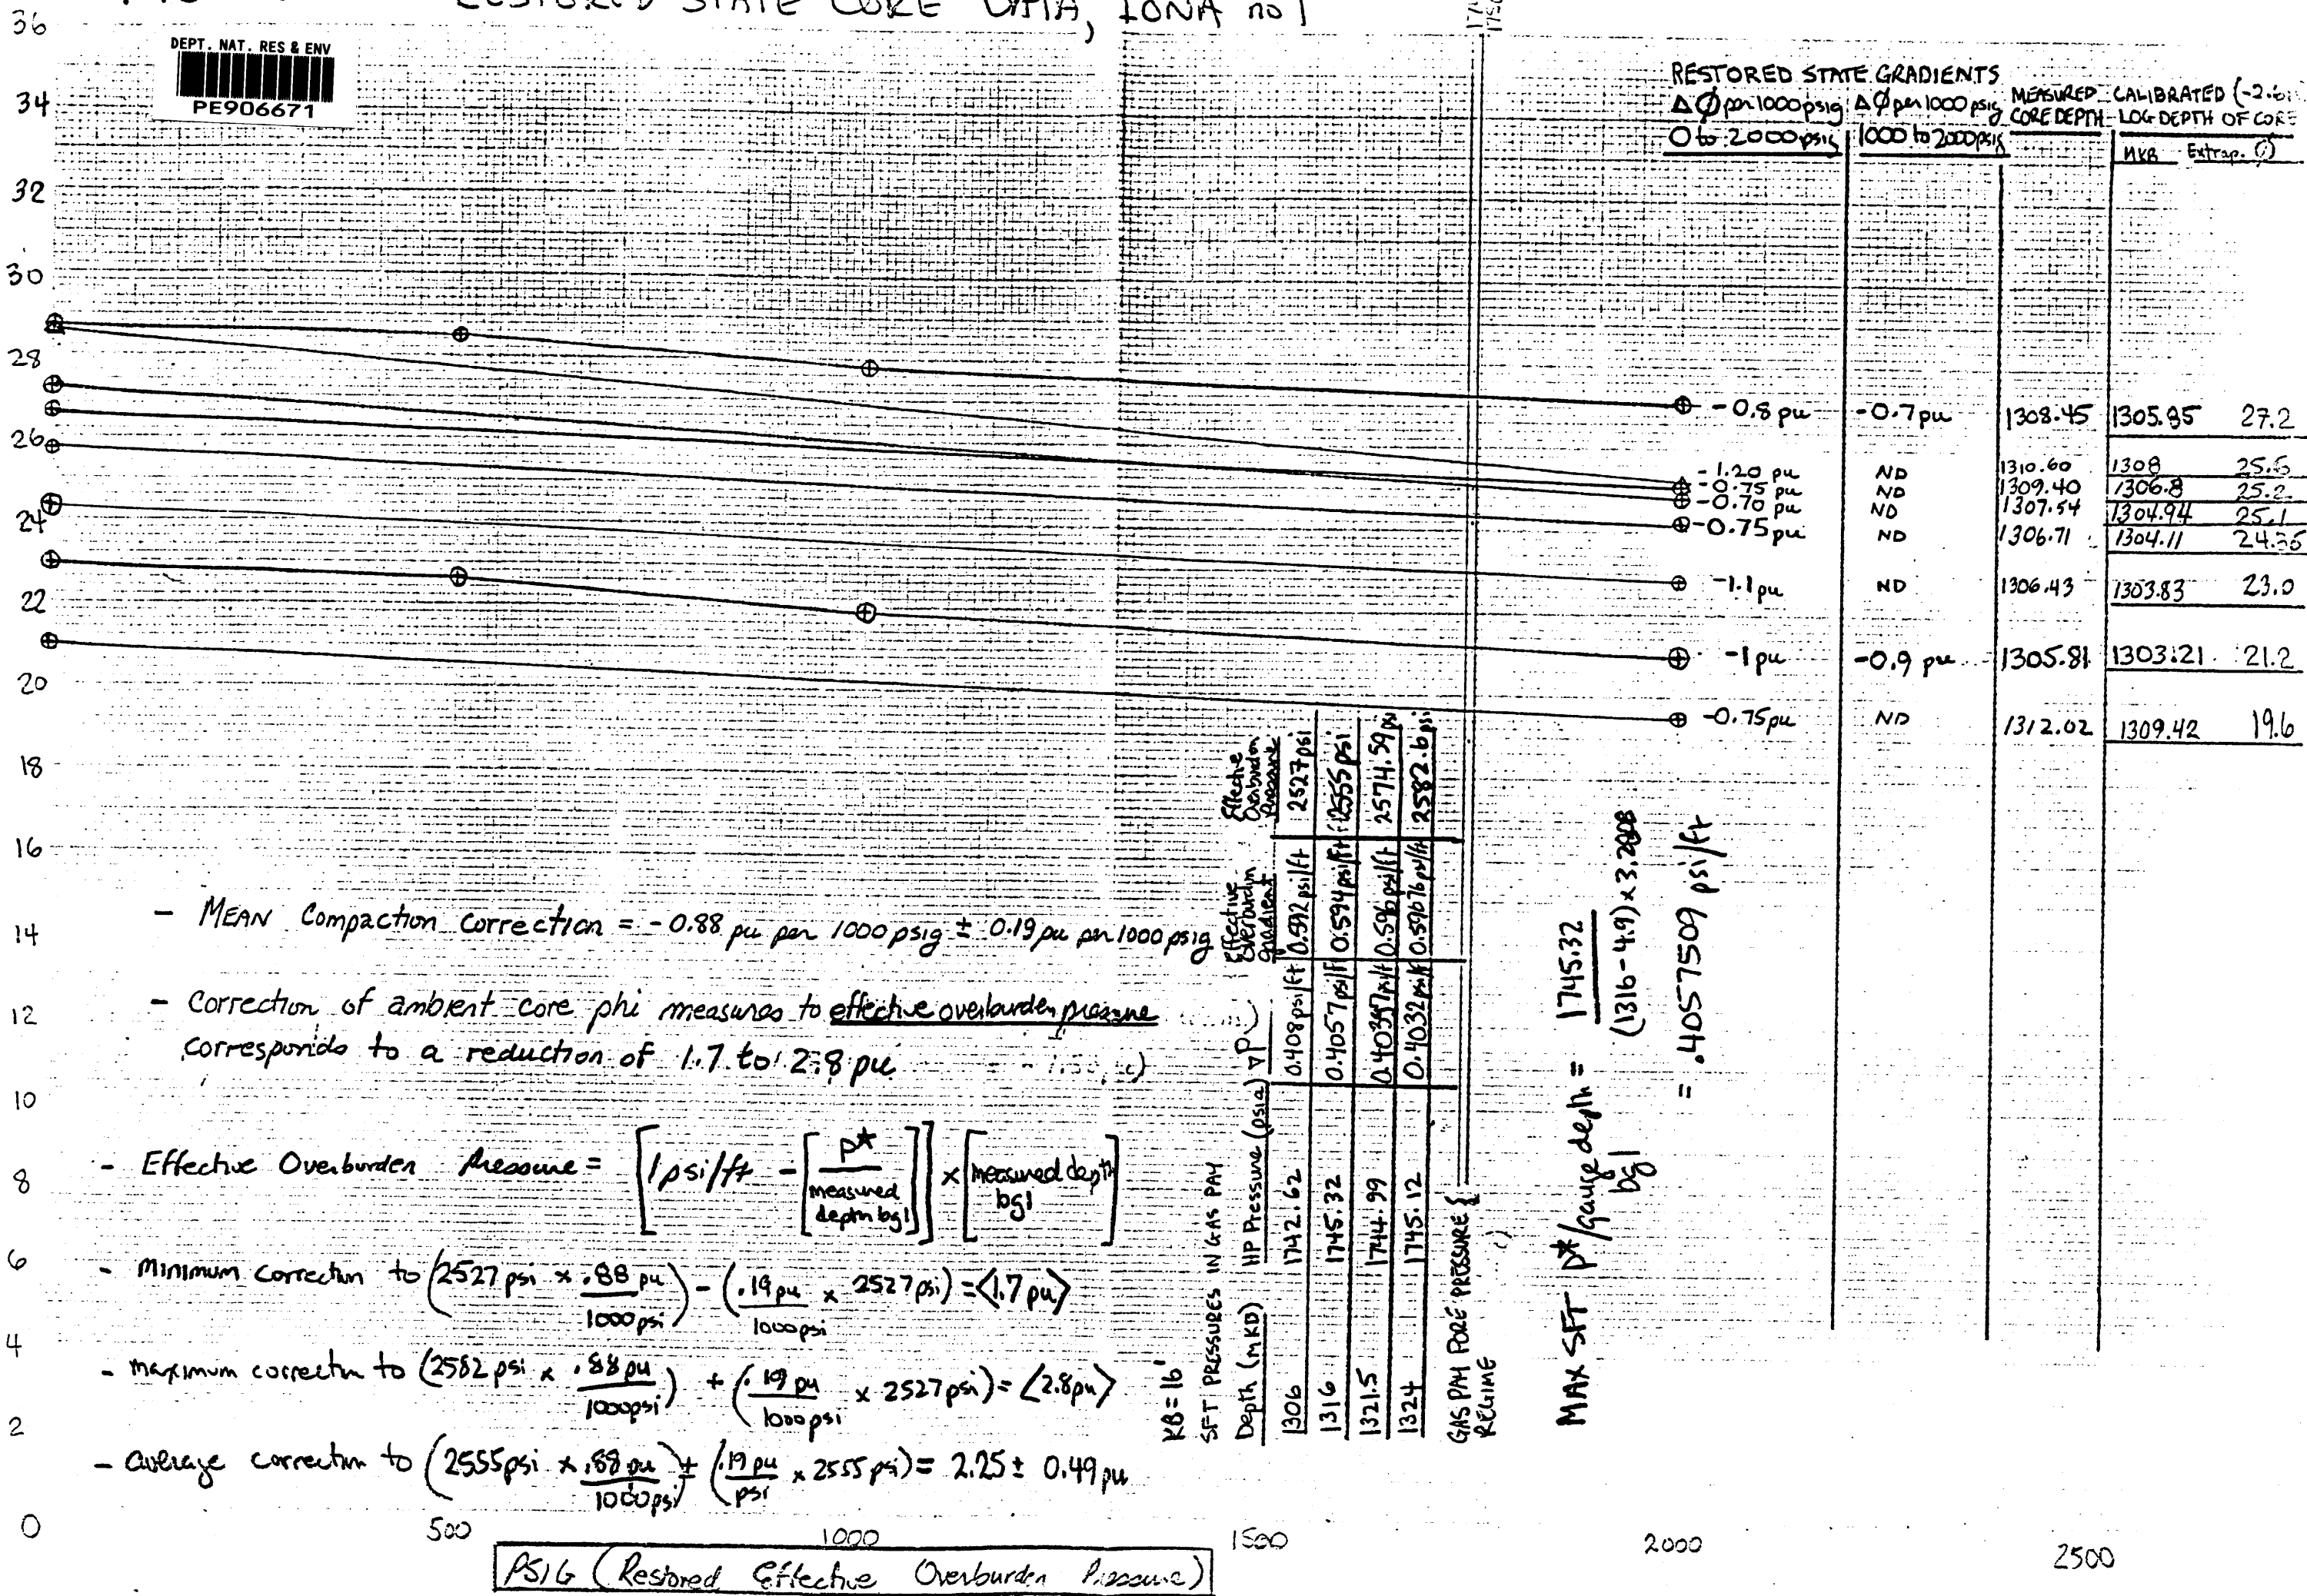 RESTORED STATE CORE DATA, IONA no 1
DEPT. NAT. RES & ENV
PE906671
36
34
32
30
28
26
24
22
20
18
16
14
12
10
8
6
4
2
0
500
1000
1500
2000
2500
PSIG (Restored Effective Overburden Pressure)
RESTORED STATE GRADIENTS
ΔØ per 1000 psig ΔØ per 1000 psig MEASURED CALIBRATED (-2.6
0 to 2000 psig 1000 to 2000 psig CORE DEPTH LOG DEPTH OF CORE
MKB Extrap. Ø
-0.8 pu -0.7 pu 1308.45 1305.85 27.2
-1.20 pu ND 1310.60 1308 25.6
-0.75 pu ND 1309.40 1306.8 25.2
-0.70 pu ND 1307.54 1304.94 25.1
-0.75 pu ND 1306.71 1304.11 24.35
-1.1 pu ND 1306.43 1303.83 23.0
-1 pu -0.9 pu 1305.81 1303.21 21.2
-0.75 pu ND 1312.02 1309.42 19.6
- MEAN Compaction correction = -0.88 pu per 1000 psig ± 0.19 pu per 1000 psig
- Correction of ambient core phi measures to effective overburden pressure
corresponds to a reduction of 1.7 to 2.8 pu
- Effective Overburden Pressure = [1 psi/ft - [P* / measured depth bgl]] × [measured depth bgl]
- Minimum correctin to (2527 psi × .88 pu / 1000 psi) - (.19 pu / 1000 psi × 2527 psi) = <1.7 pu>
- maximum correctin to (2582 psi × .88 pu / 1000 psi) + (.19 pu / 1000 psi × 2527 psi) = <2.8 pu>
- average correctin to (2555 psi × .88 pu / 1000 psi) ± (.19 pu / psi × 2555 psi) = 2.25 ± 0.49 pu
KB = 16'
SFT PRESSURES IN GAS PAY
Depth (MKD) HP Pressure (psia) ∇P Effective Overburden gradient Effective Overburden Pressure
1306 1742.62 0.408 psi/ft 0.592 psi/ft 2527 psi
1316 1745.32 0.4057 psi/ft 0.594 psi/ft 2555 psi
1321.5 1744.99 0.40397 psi/ft 0.596 psi/ft 2574.59 psi
1324 1745.12 0.4032 psi/ft 0.59676 psi/ft 2582.6 psi
GAS PAY PORE PRESSURE {
REGIME
MAX SFT P*/gauge depth bgl = 1745.32 / (1316-4.9) × 3.2808
= .4057509 psi/ft